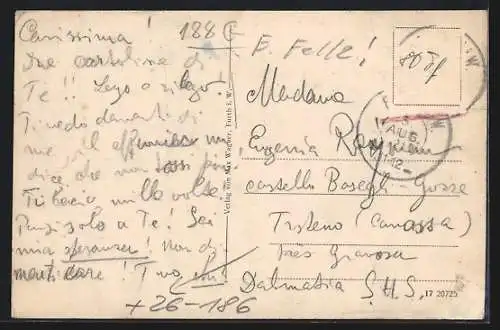 188
Carissima!
Due cartoline di
Te!! Leggo e rileggo.
Ti vedo davanti di
me, il
dice che non
Ti bacio mille volte.
Penzi solo a Te! Sei
mia speranza! Non di
menticare! Tuo
+26-186
Verlag von Max Wagner, Furth i. W.
E. Felle!
AUG
12
Madama
Eugenia
castello Bosegli-Gozze
Trsteno (Canossa)
près Gravosa
Dalmatia S.H.S.
17 20725